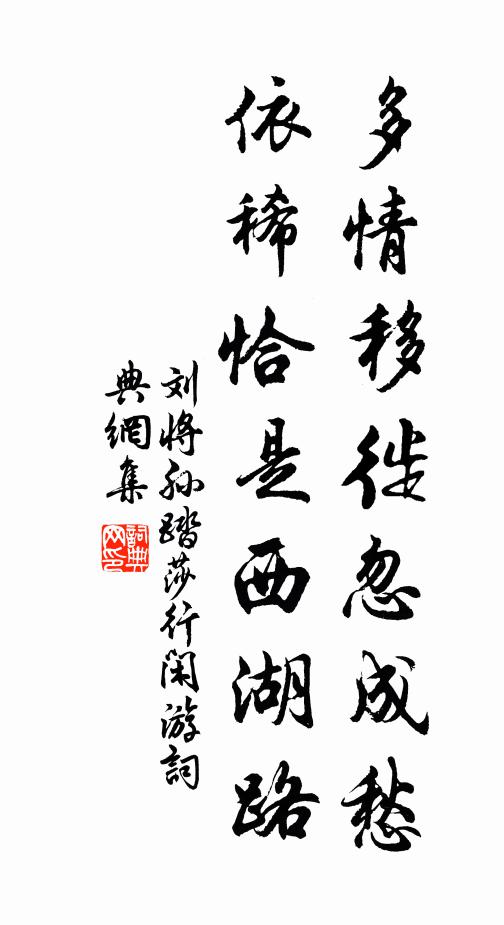 多情移徙忽成愁
依稀恰是西湖路
刘将孙踏莎行闲游詞
典網集
詞典網印